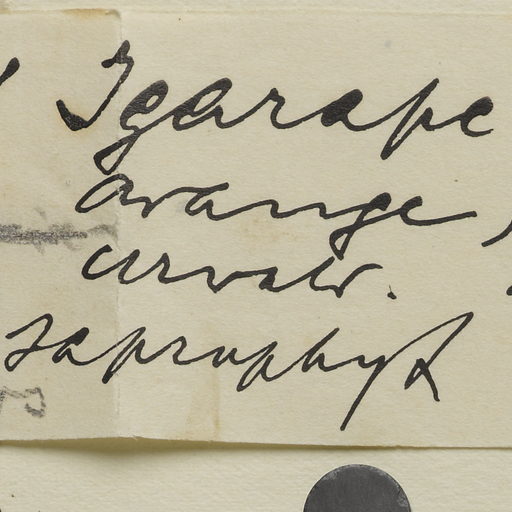 Igarape
orange,
urwald.
saprophyt